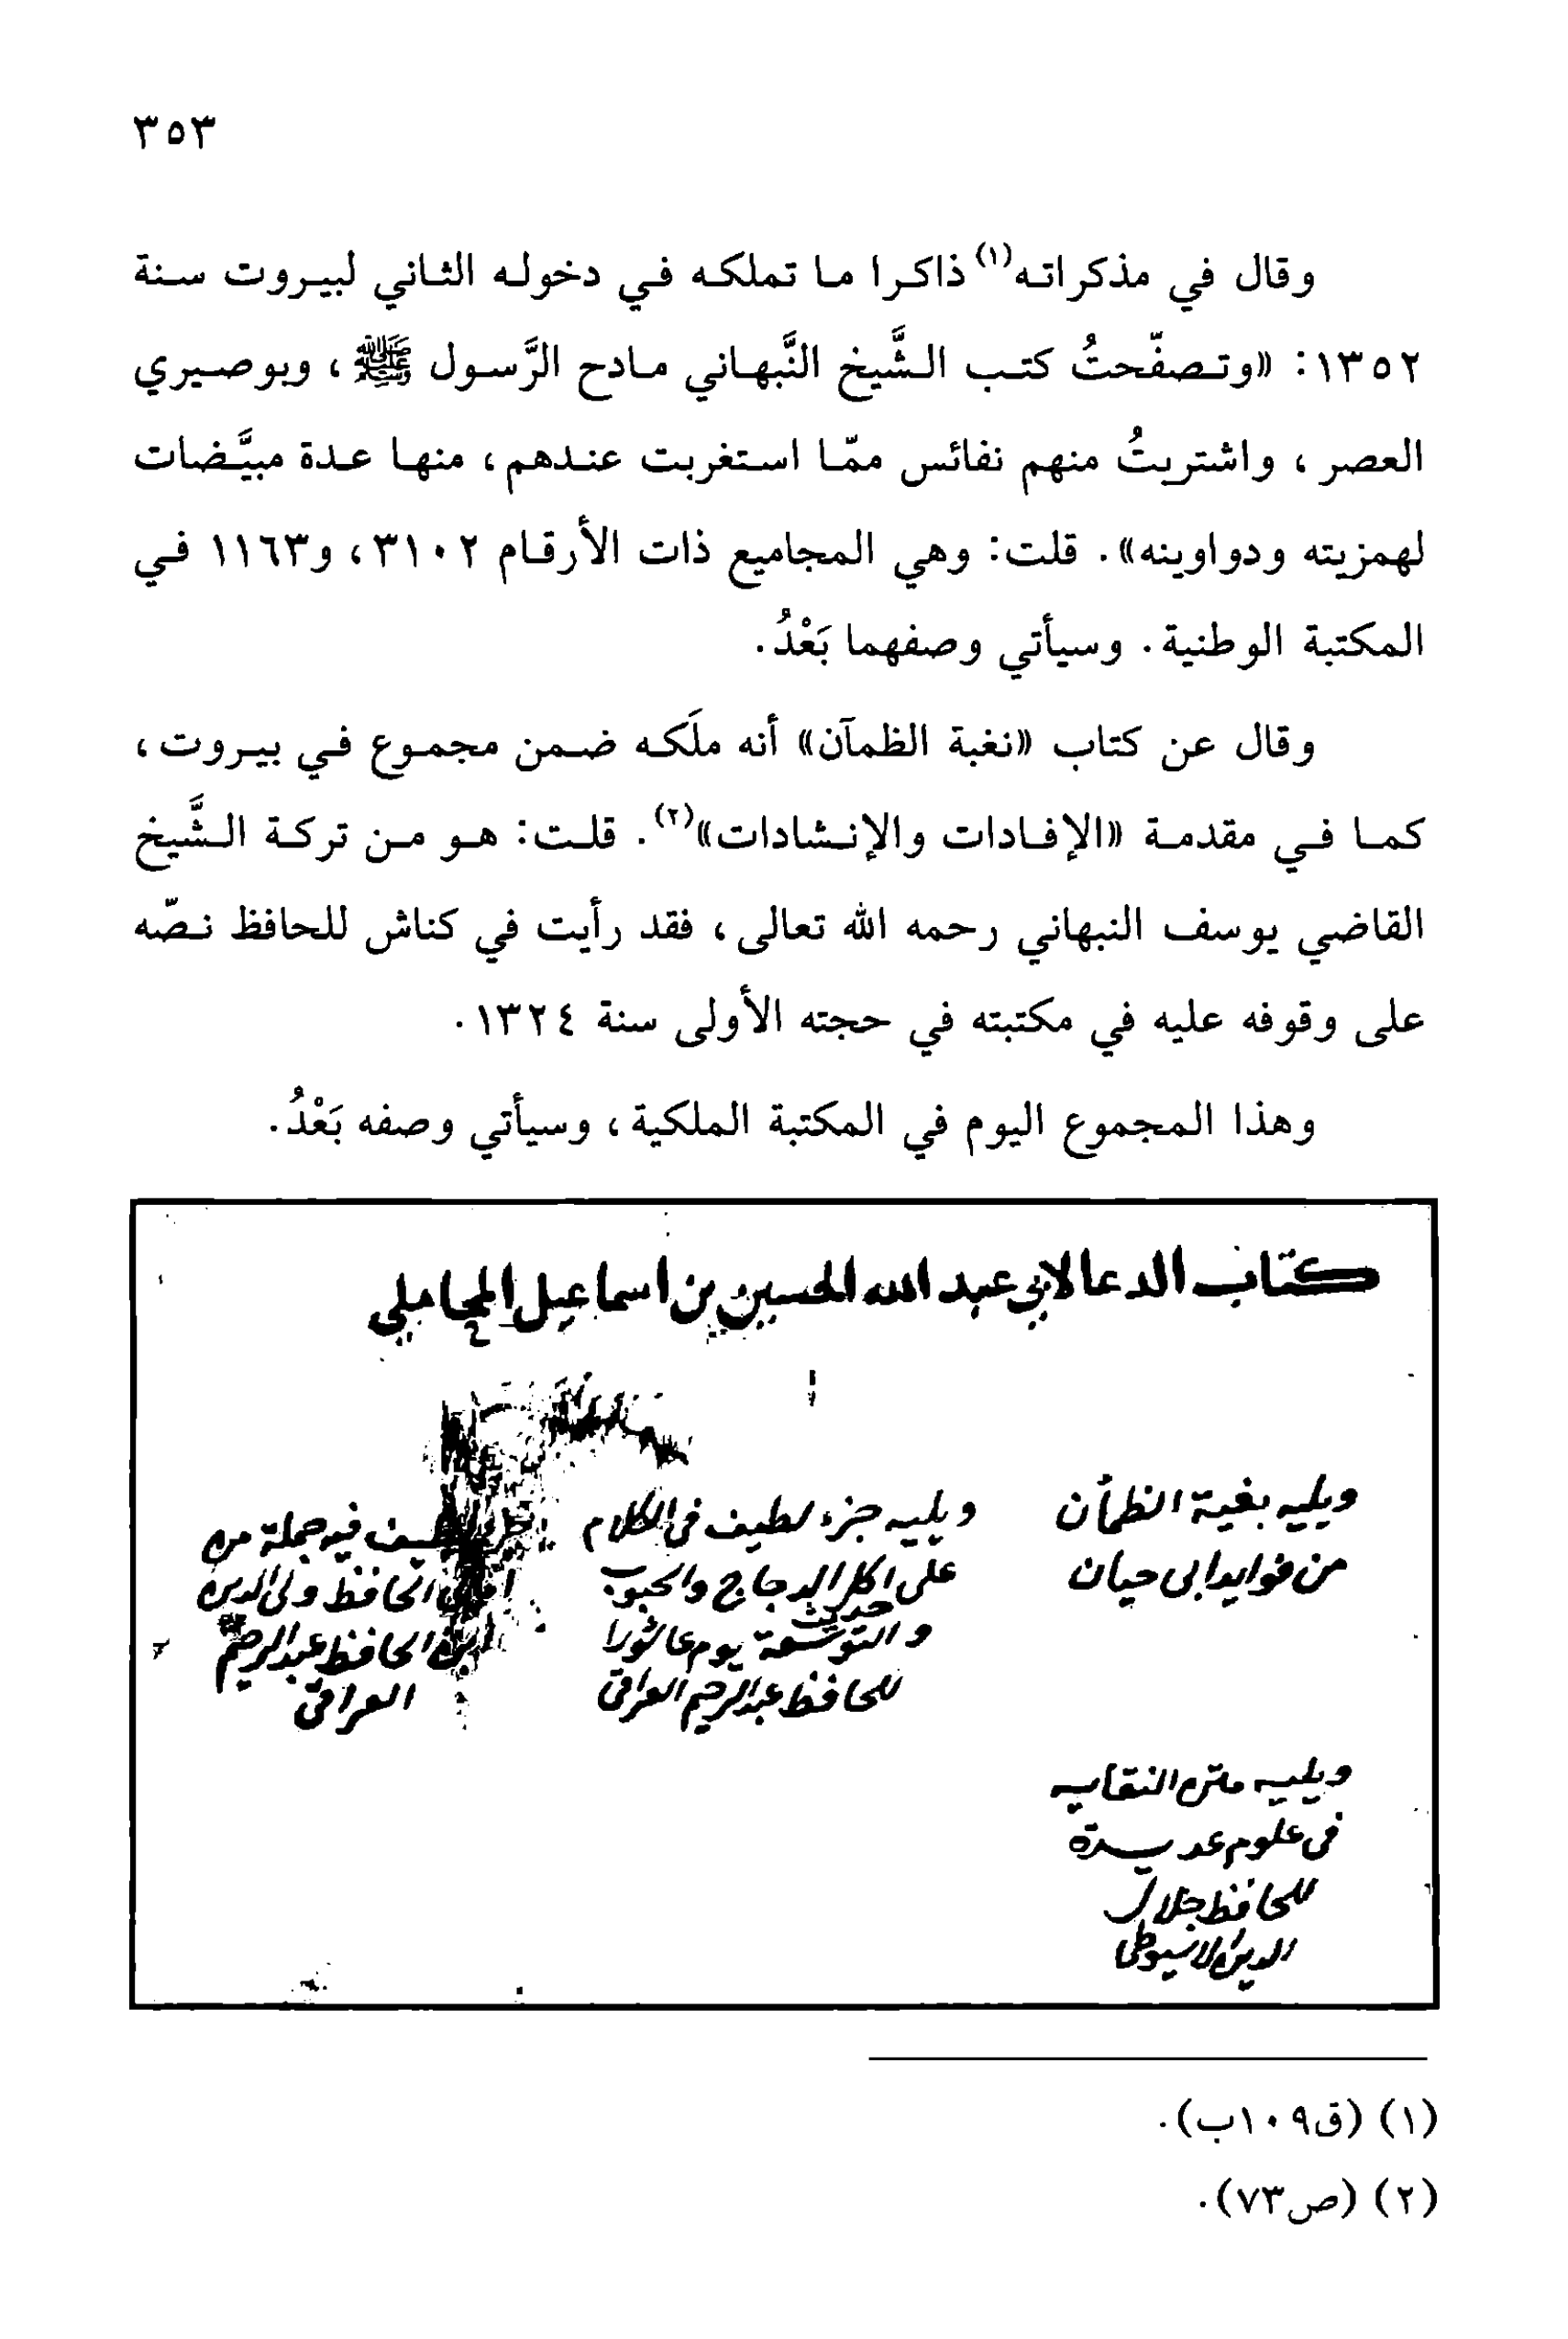 ٣٥٣
وقال في مذكراته(١) ذاكرا ما تملكه في دخوله الثاني لبيروت سنة
١٣٥٢: «وتصفّحتُ كتب الشَّيخ النَّبهاني مادح الرَّسول ﷺ، وبوصيري
العصر، واشتريتُ منهم نفائس ممّا استغربت عندهم، منها عدة مبيَّضات
لهمزيته ودواوينه». قلت: وهي المجاميع ذات الأرقام ٣١٠٢، و١١٦٣ في
المكتبة الوطنية. وسيأتي وصفهما بَعْدُ.
وقال عن كتاب «نغبة الظمآن» أنه ملَكه ضمن مجموع في بيروت،
كما في مقدمة «الإفادات والإنشادات»(٢). قلت: هو من تركة الشَّيخ
القاضي يوسف النبهاني رحمه الله تعالى، فقد رأيت في كناش للحافظ نصّه
على وقوفه عليه في مكتبته في حجته الأولى سنة ١٣٢٤.
وهذا المجموع اليوم في المكتبة الملكية، وسيأتي وصفه بَعْدُ.
كتاب الدعا لابي عبد الله الحسين بن اسماعيل المحاملي
ويليه بغية الظمأن
من فوايد ابي حيان
ويليه جزء لطيف في الكلام
على اكل الدجاج والحبوب
وحديث التوسعة يوم عاشورا
للحافظ عبد الرحيم العراقي
فيه جملة من
الحافظ ولي الدين
الحافظ عبد الرحيم
العراقي
ويليه متن النقايه
في علوم عديدة
للحافظ جلال
الدين الاسيوطي
(١) (ق١٠٩ب).
(٢) (ص٧٣).